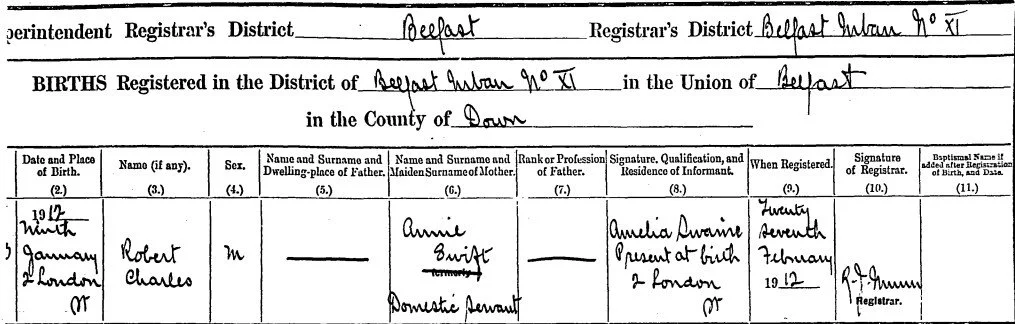 perintendent Registrar's District Belfast Registrar's District Belfast Urban No XI
BIRTHS Registered in the District of Belfast Urban No XI in the Union of Belfast
in the County of Down
Date and Place of Birth. (2.)
Name (if any). (3.)
Sex. (4.)
Name and Surname and Dwelling-place of Father. (5.)
Name and Surname and Maiden Surname of Mother. (6.)
Rank or Profession of Father. (7.)
Signature, Qualification, and Residence of Informant. (8.)
When Registered. (9.)
Signature of Registrar. (10.)
Baptismal Name if added after Registration of Birth, and Date. (11.)
1912
Ninth
January
2 London
St
Robert
Charles
M
Annie
Swift
formerly
Domestic Servant
Amelia Swaine
Present at birth
2 London
St
Twenty
seventh
February
1912
Registrar.